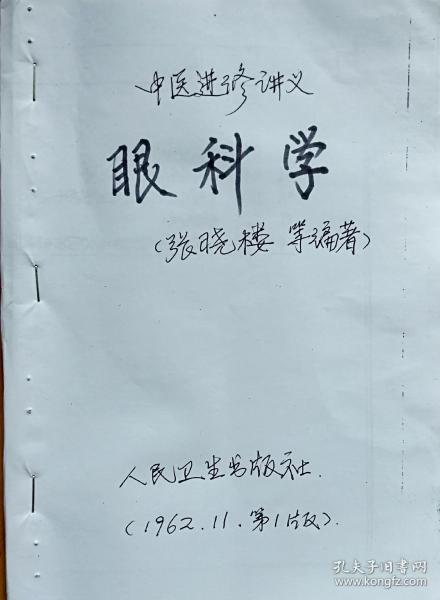 中医进修讲义
眼科学
(张晓楼 等编著)
人民卫生出版社.
(1962.11.第1版).
孔夫子旧书网
www.kongfz.com